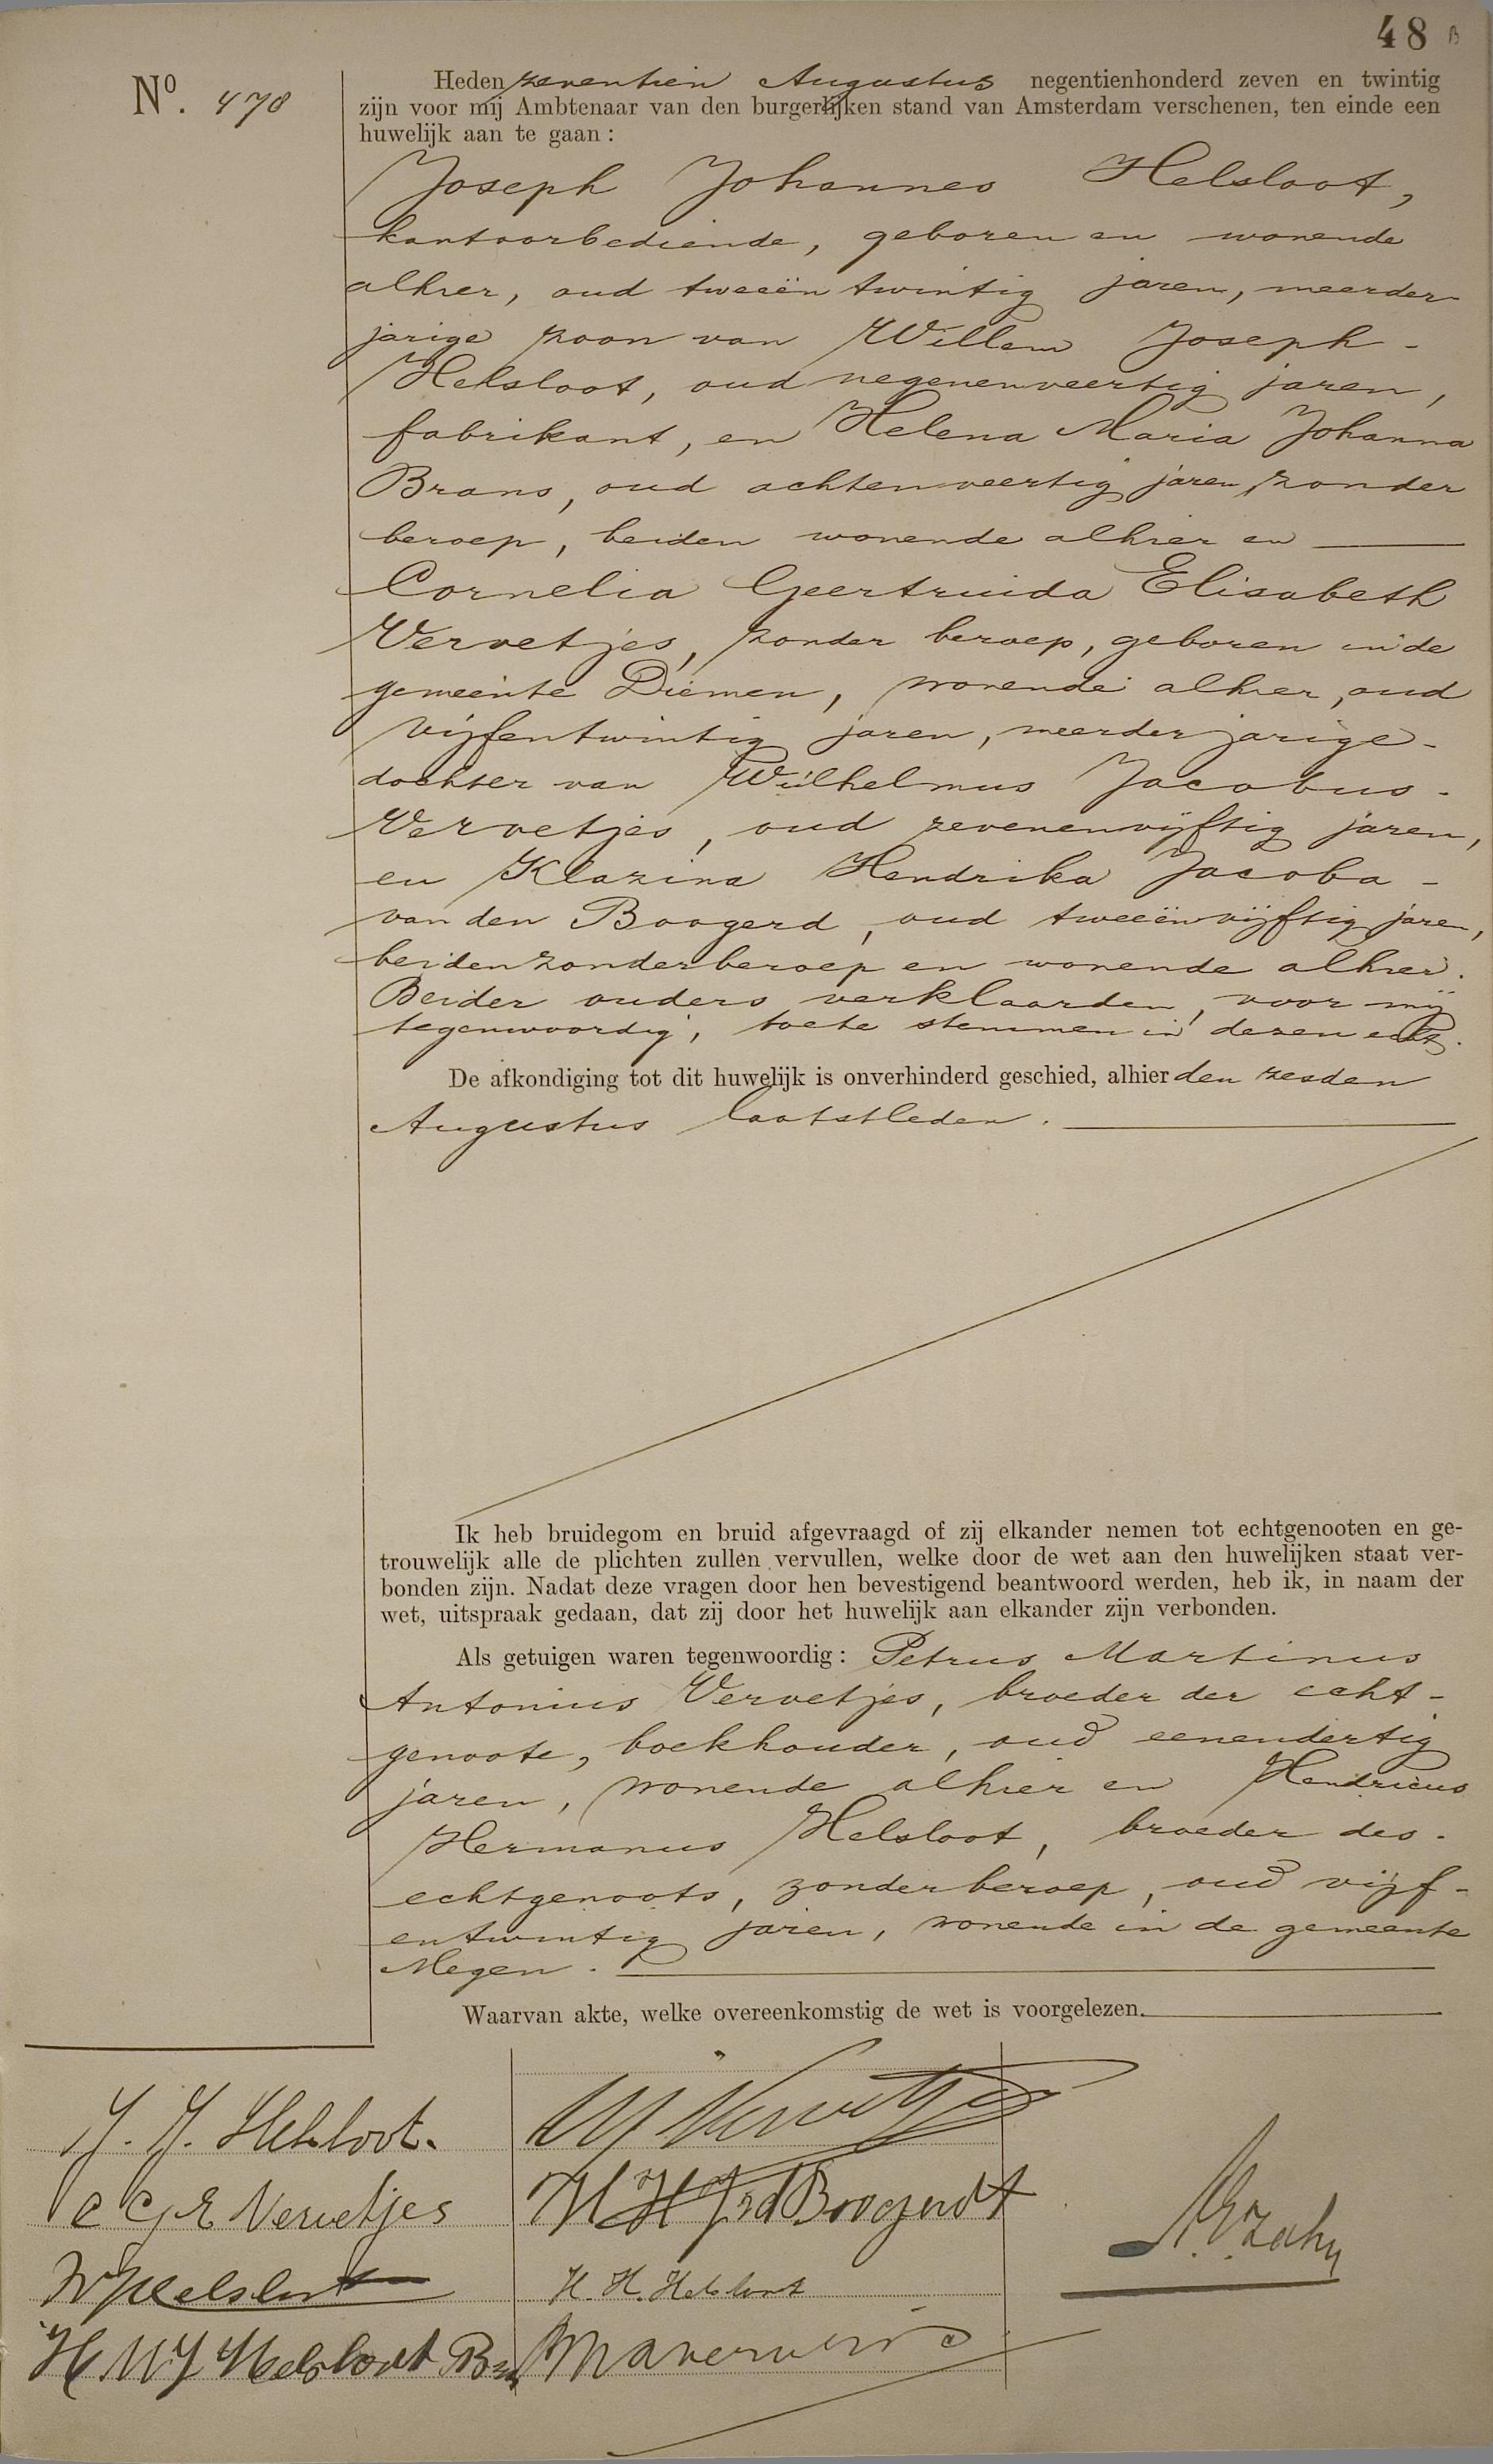 48 B
No. 478
Heden zeventien Augustus negentienhonderd zeven en twintig
zijn voor mij Ambtenaar van den burgerlijken stand van Amsterdam verschenen, ten einde een
huwelijk aan te gaan:
Joseph Johannes Helsloot,
kantoorbediende, geboren en wonende
alhier, oud tweeëntwintig jaren, meerder-
jarige zoon van Willem Joseph -
Helsloot, oud negenenveertig jaren,
fabrikant, en Helena Maria Johanna
Brans, oud achtenveertig jaren, zonder
beroep, beiden wonende alhier en
Cornelia Geertruida Elisabeth
Vervetjes, zonder beroep, geboren in de
gemeente Diemen, wonende alhier, oud
vijfentwintig jaren, meerderjarige -
dochter van Wilhelmus Jacobus -
Vervetjes, oud zevenenvijftig jaren,
en Klazina Hendrika Jacoba -
van den Boogerd, oud tweeënvijftig jaren,
beiden zonder beroep en wonende alhier.
Beider ouders verklaarden, voor mij
tegenwoordig, toe te stemmen in dezen echt.
De afkondiging tot dit huwelijk is onverhinderd geschied, alhier den zesden
Augustus laatstleden.
Ik heb bruidegom en bruid afgevraagd of zij elkander nemen tot echtgenooten en ge-
trouwelijk alle de plichten zullen vervullen, welke door de wet aan den huwelijken staat ver-
bonden zijn. Nadat deze vragen door hen bevestigend beantwoord werden, heb ik, in naam der
wet, uitspraak gedaan, dat zij door het huwelijk aan elkander zijn verbonden.
Als getuigen waren tegenwoordig: Petrus Martinus
Antonius Vervetjes, broeder der echt-
genoote, boekhouder, oud eenendertig
jaren, wonende alhier en Hendricus
Hermanus Helsloot, broeder des -
echtgenoots, zonder beroep, oud vijf-
entwintig jaren, wonende in de gemeente
Megen.
Waarvan akte, welke overeenkomstig de wet is voorgelezen.
J. J. Helsloot.
C G E Vervetjes
W J Helsloot
H M J Helsloot
W J Vervetjes
K H J v d Boogerdt
H. H. Helsloot